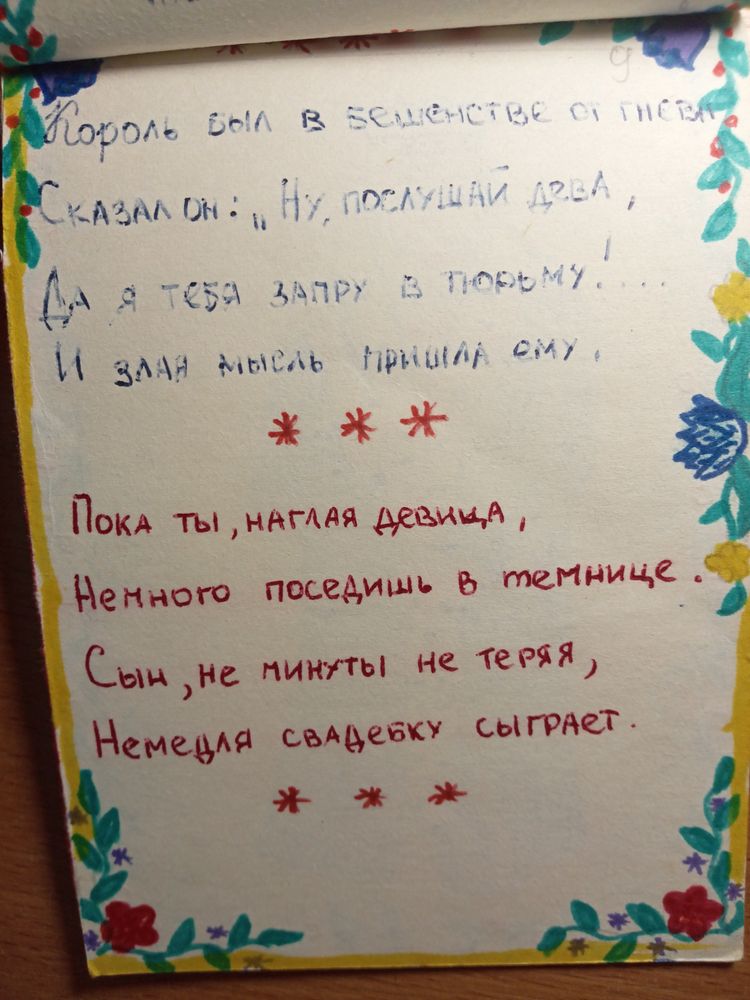 9
Король был в бешенстве от гнева
Сказал он: „Ну, послушай дева,
Да я тебя запру в тюрьму!....
И злая мысль пришла ему.
* * *
Пока ты, наглая девица,
Немного поседишь в темнице.
Сын, не минуты не теряя,
Немедля свадебку сыграет.
* * *